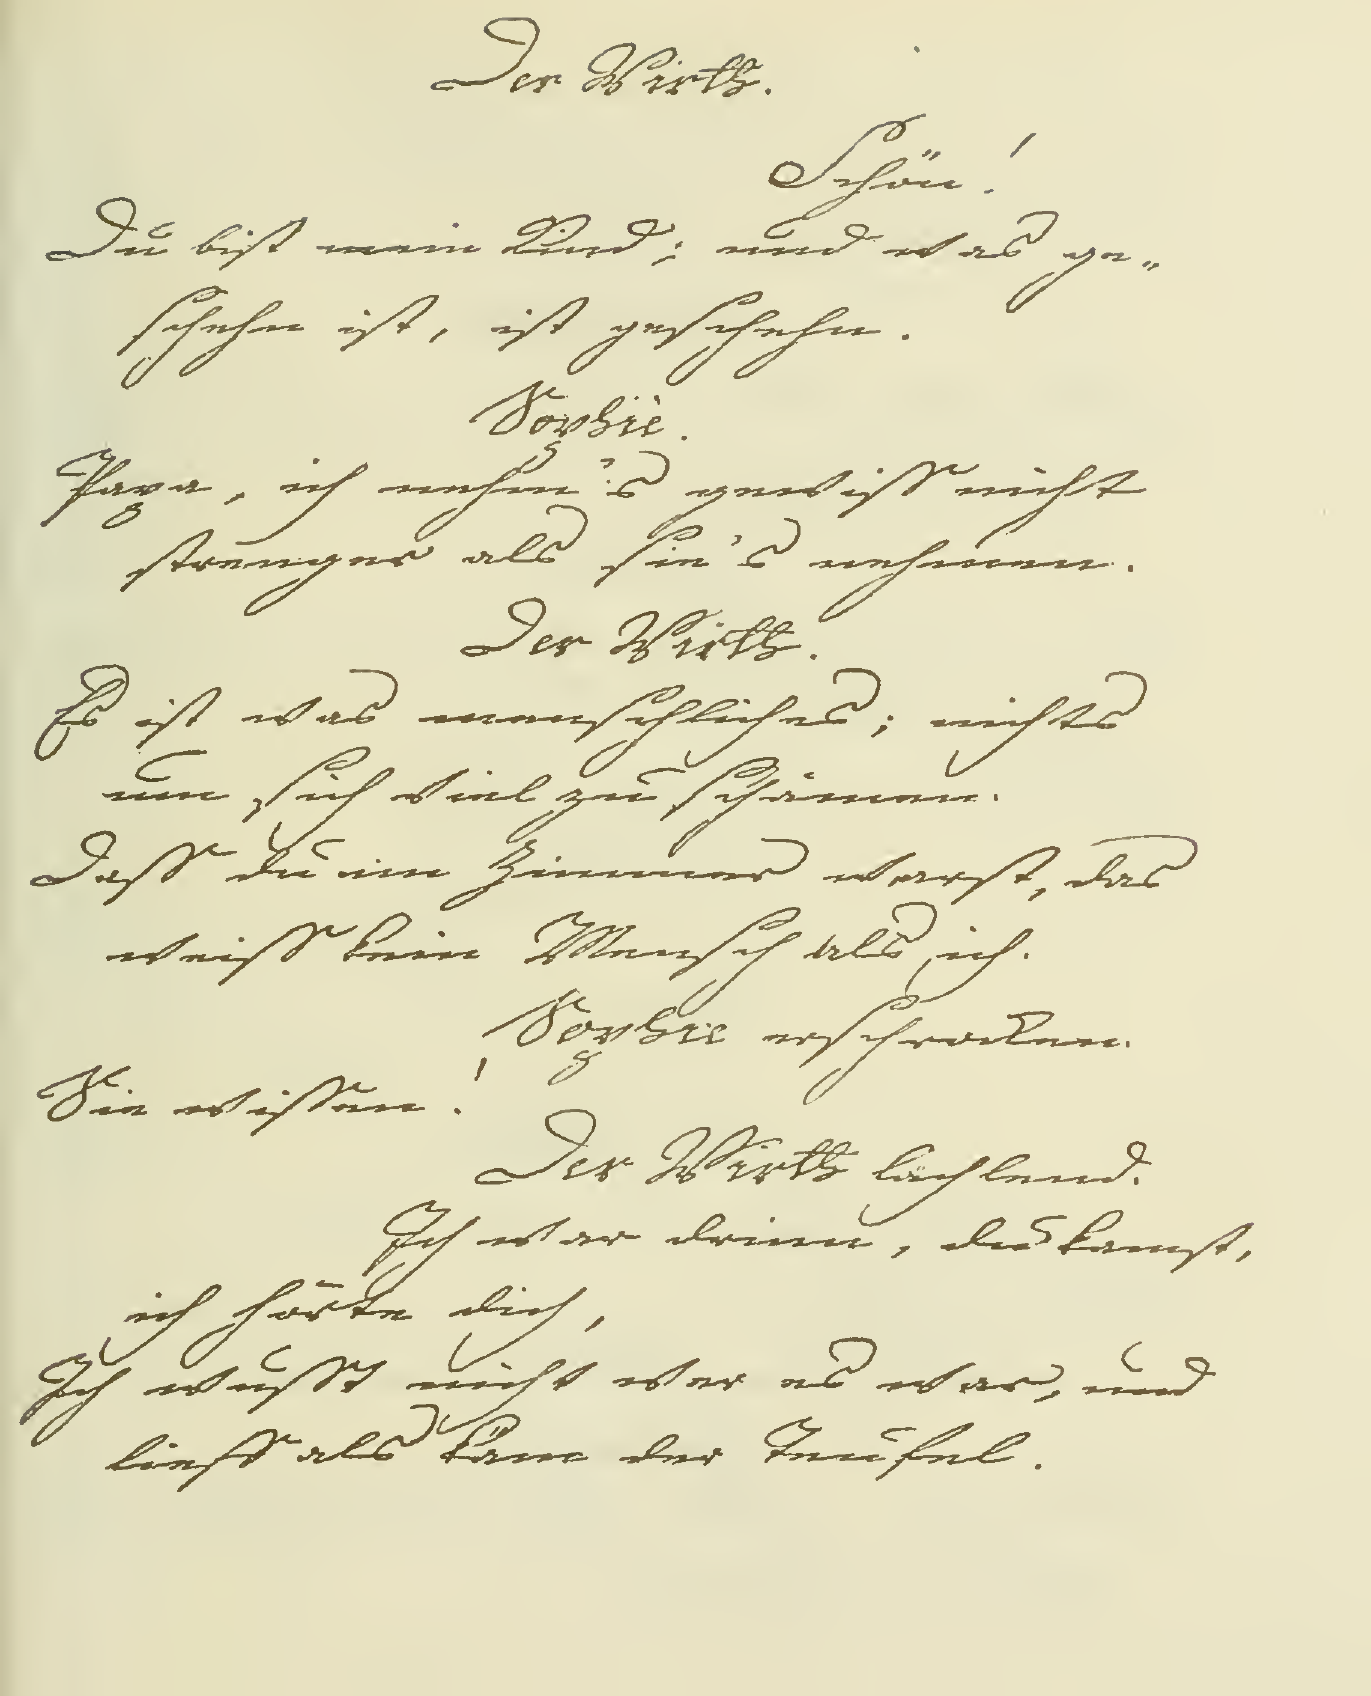 Der Wirth.
Schön!
Du bist mein Kind; und was ge„
schehn ist, ist geschehn.
Sophie.
Papa, ich nehm's gewiss nicht
strenger als sie's nehmen.
Der Wirth.
Es ist was menschliches; nichts
um sich viel zu schämen.
Dass du im Zimmer warst, das
weiss kein Mensch als ich.
Sophie erschrocken.
Sie wissen!
Der Wirth lächlend.
Ich war drinn, du kamst,
ich hörte dich,
Ich wusst nicht wer es war, und
lieff als käm der Teufel.